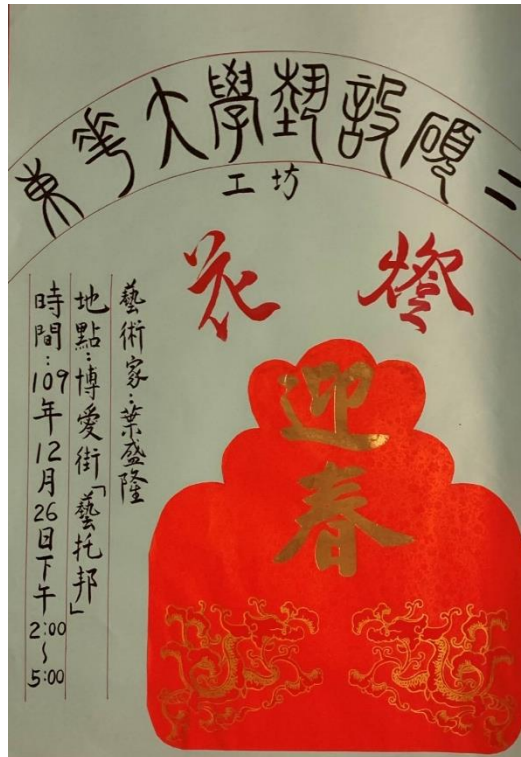 東華大學藝設碩二
工坊
花燈
迎春
藝術家：葉盛隆
地點：博愛街「藝托邦」
時間：109年12月26日下午2:00～5:00